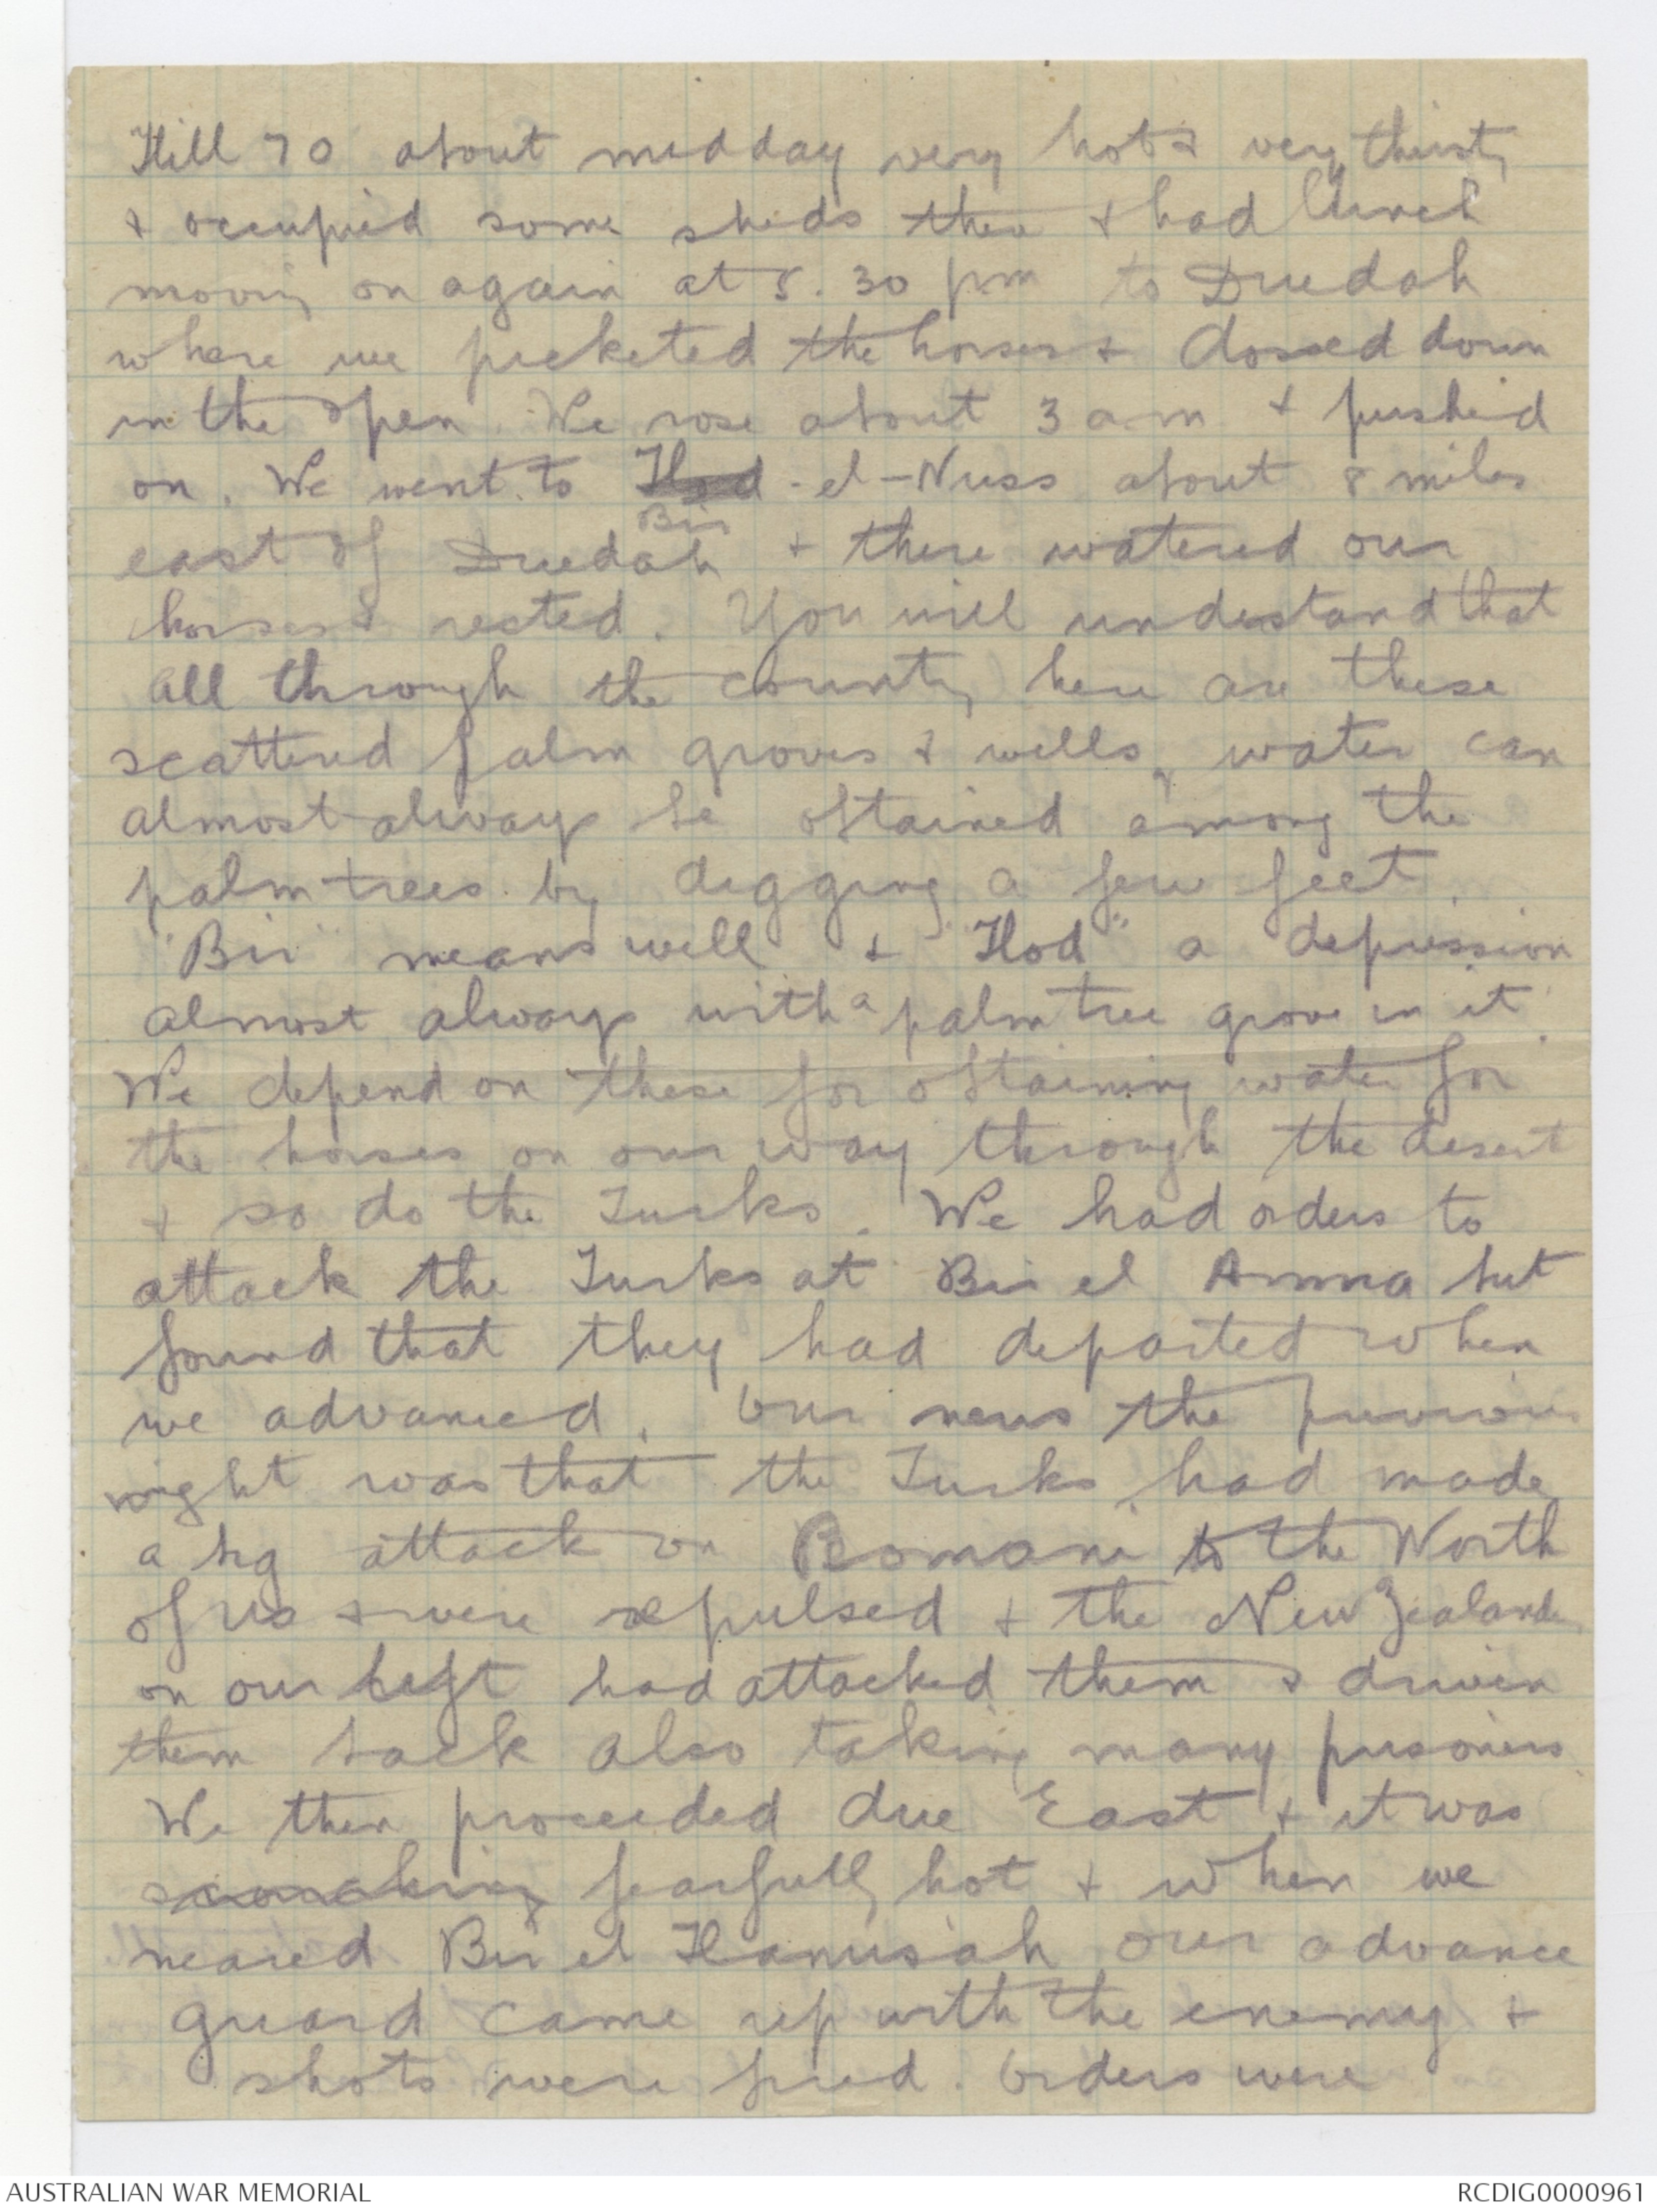 Hill 70 about midday very hot & very thirsty
& occupied some sheds there & had lunch
moving on again at 5.30 pm to Duedah
where we picketed the horses & dossed down
in the open. We rose about 3 am & pushed
on. We went to Hod -el-Nuss about 8 miles
Bir
east of Duedah & there watered our
horses & rested. You will understand that
all through the country here are these
scattered palm groves & wells, water can
almost always be obtained among the
palm trees by digging a few feet.
"Bir" means well & "Hod" a depression
almost always with a palm tree grove in it.
We depend on these for obtaining water for
the horses on our way through the desert
& so do the Turks. We had orders to
attack the Turks at Bir el Amma but
found that they had departed when
we advanced. Our news the previous
night was that the Turks had made
a big attack on Romani to the North
of us & were repulsed & the New Zealanders
on our left had attacked them & driven
them back also taking many prisoners
We then proceeded due East & it was
fearfully hot & when we
neared Bir el Hamisah our advance
guard came up with the enemy &
shots were fired. Orders were
AUSTRALIAN WAR MEMORIAL
RCDIG0000961